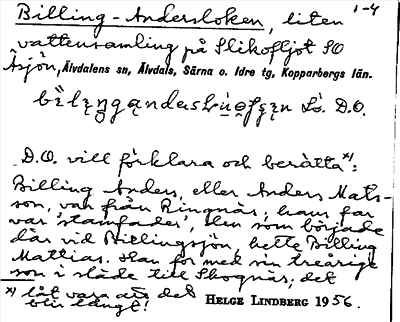 Billing-Andersloken, liten 1-4
vattensamling på Slikofljot SO
Åsjön, Älvdalens sn, Älvdals, Särna o. Idre tg, Kopparbergs län.
D.O.
D.O. vill förklara och berätta x):
Billing Anders, eller Anders Mats-
son, var från Ringnäs; hans far
var 'stamfader', den som började
där vid Billingsjön, hette Billing
Mattias. Han for med sin treårige
son i släde till Skognäs; det
x) låt vara att det
blir långt!
HELGE LINDBERG 1956.